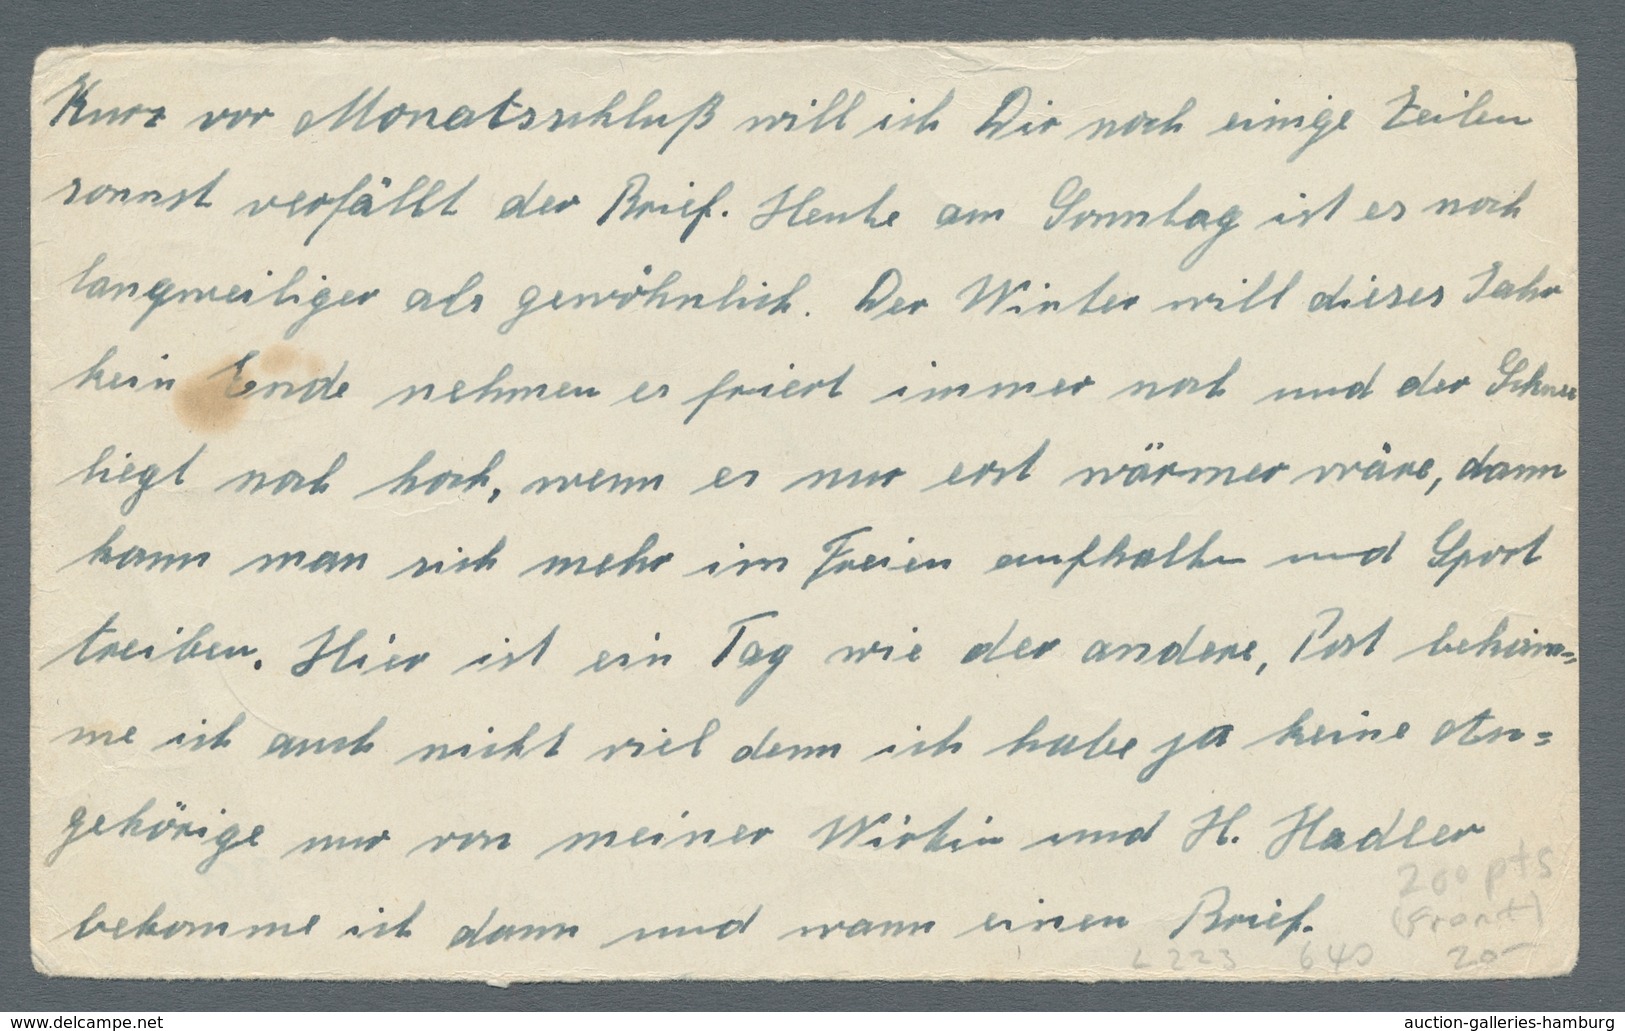 Kurz vor Monatsschluß will ich Dir noch einige Zeilen
sonnst verfällt der Brief. Heute am Sonntag ist es noch
langweiliger als gewöhnlich. Der Winter will dieses Jahr
kein Ende nehmen es friert immer noch und der Schnee
liegt noch hoch, wenn es nur erst wärmer wäre, dann
kann man sich mehr im Freien aufhalten und Sport
treiben. Hier ist ein Tag wie der andere, Post bekom=
me ich auch nicht viel denn ich habe ja keine An=
gehörige nur von meiner Wirtin und H. Hadler
bekomme ich dann und wann einen Brief.
200 pts
(Front)
L 223 640 20-
www.delcampe.net
auction-galleries-hamburg